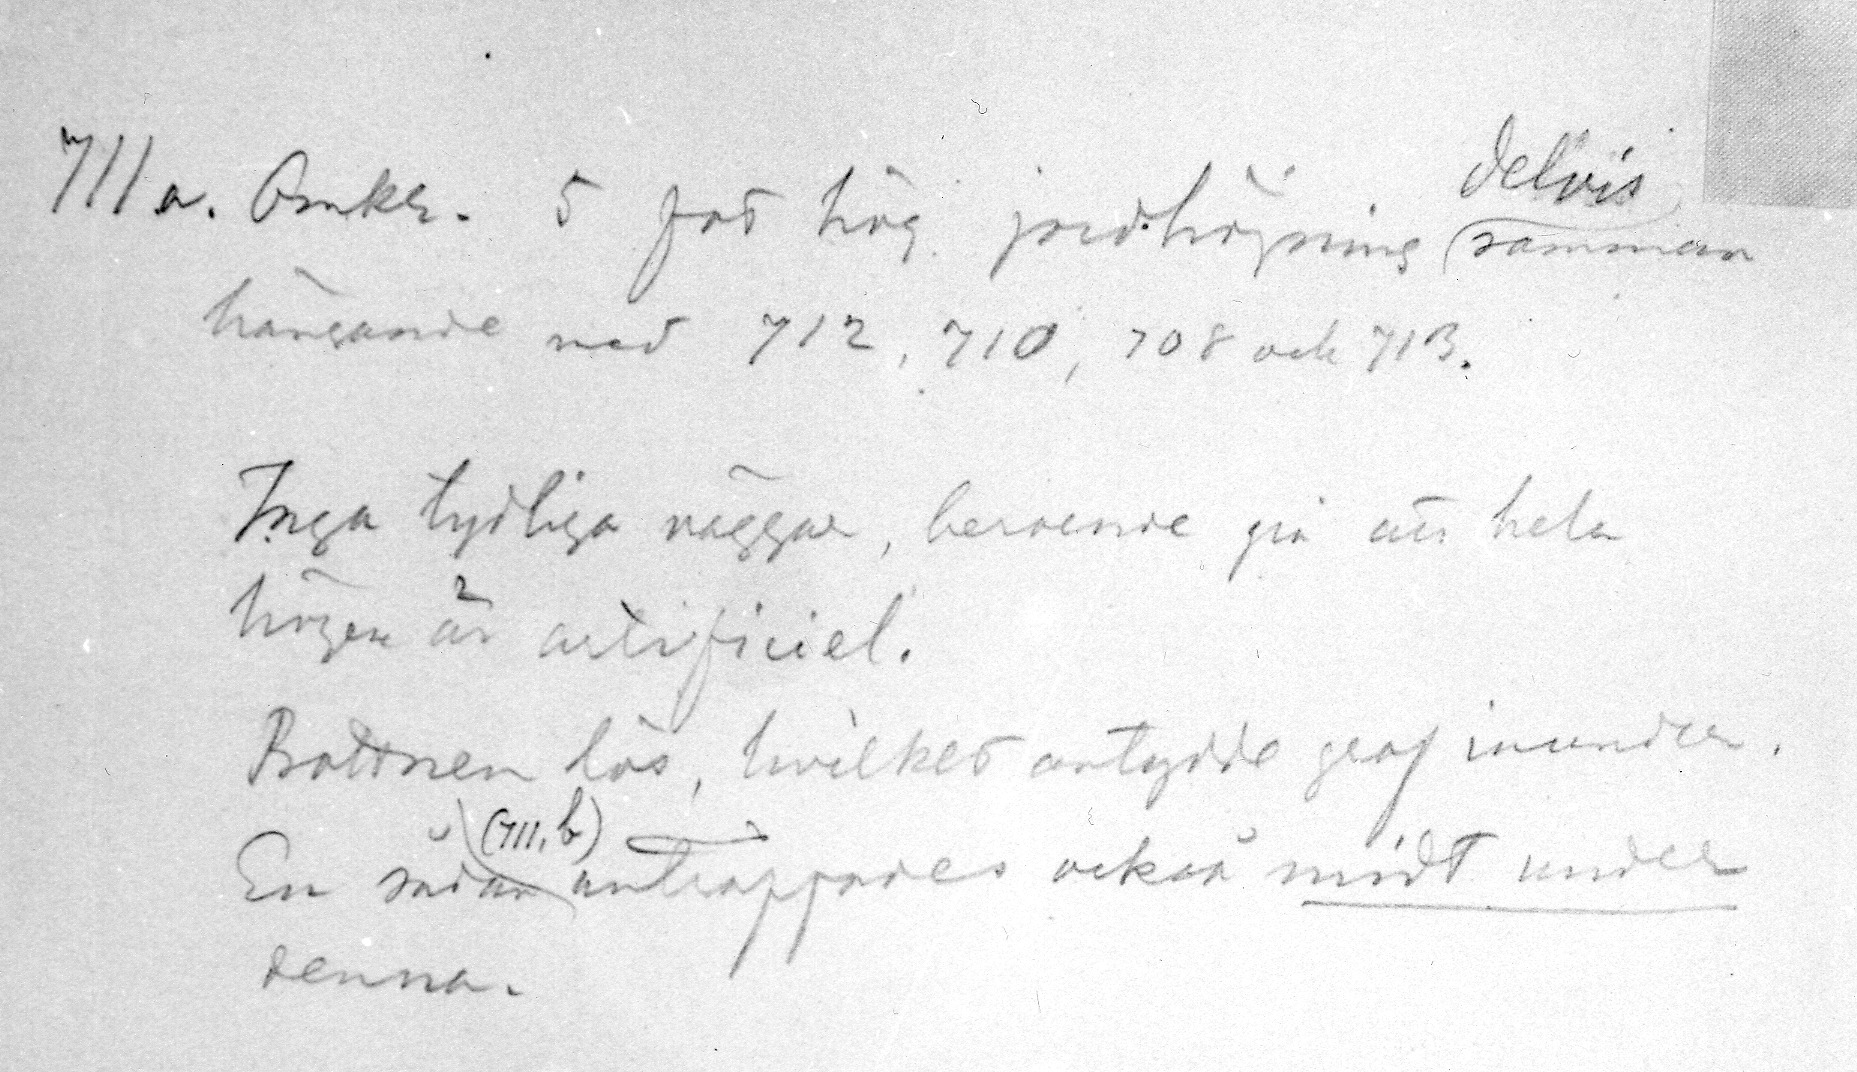 711a. Omkr. 5 fot hög jordhöjning delvis samman
hängande med 712, 710, 708 och 713.
Inga tydliga väggar, beroende på att hela
högen är artificiel.
Bottnen lös, hvilket antydde graf inunder.
En sådan (711.b) anträffades också midt under
denna.